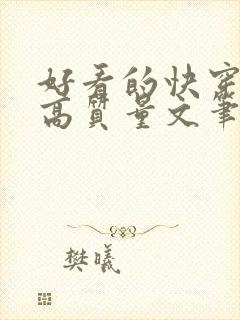 好看的快穿
高质量文笔
樊曦